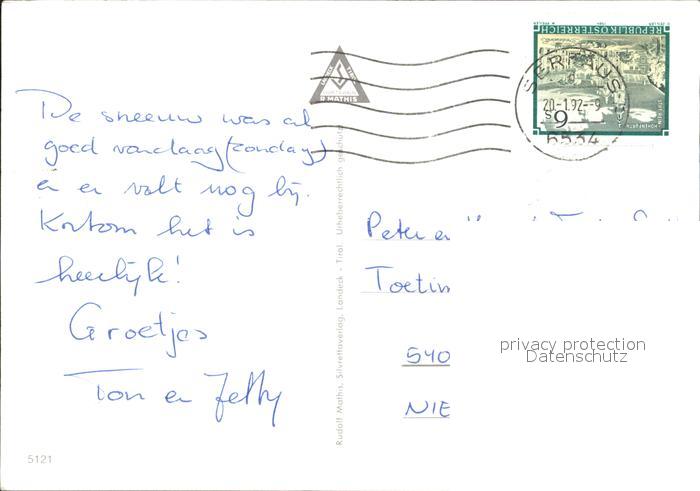 De sneeuw was al
goed vandaag (zondag)
en er valt nog bij.
Kortom het is
heerlijk!
Groetjes
Ton en Jetty
5121
R MATHIS
Rudolf Mathis, Silvrettaverlag, Landeck - Tirol. Urheberrechtlich geschützt
REPUBLIK ÖSTERREICH
S 6
SERFAUS
20-1.92-9
6534
Peter en
Toetin
540
NIE
privacy protection
Datenschutz